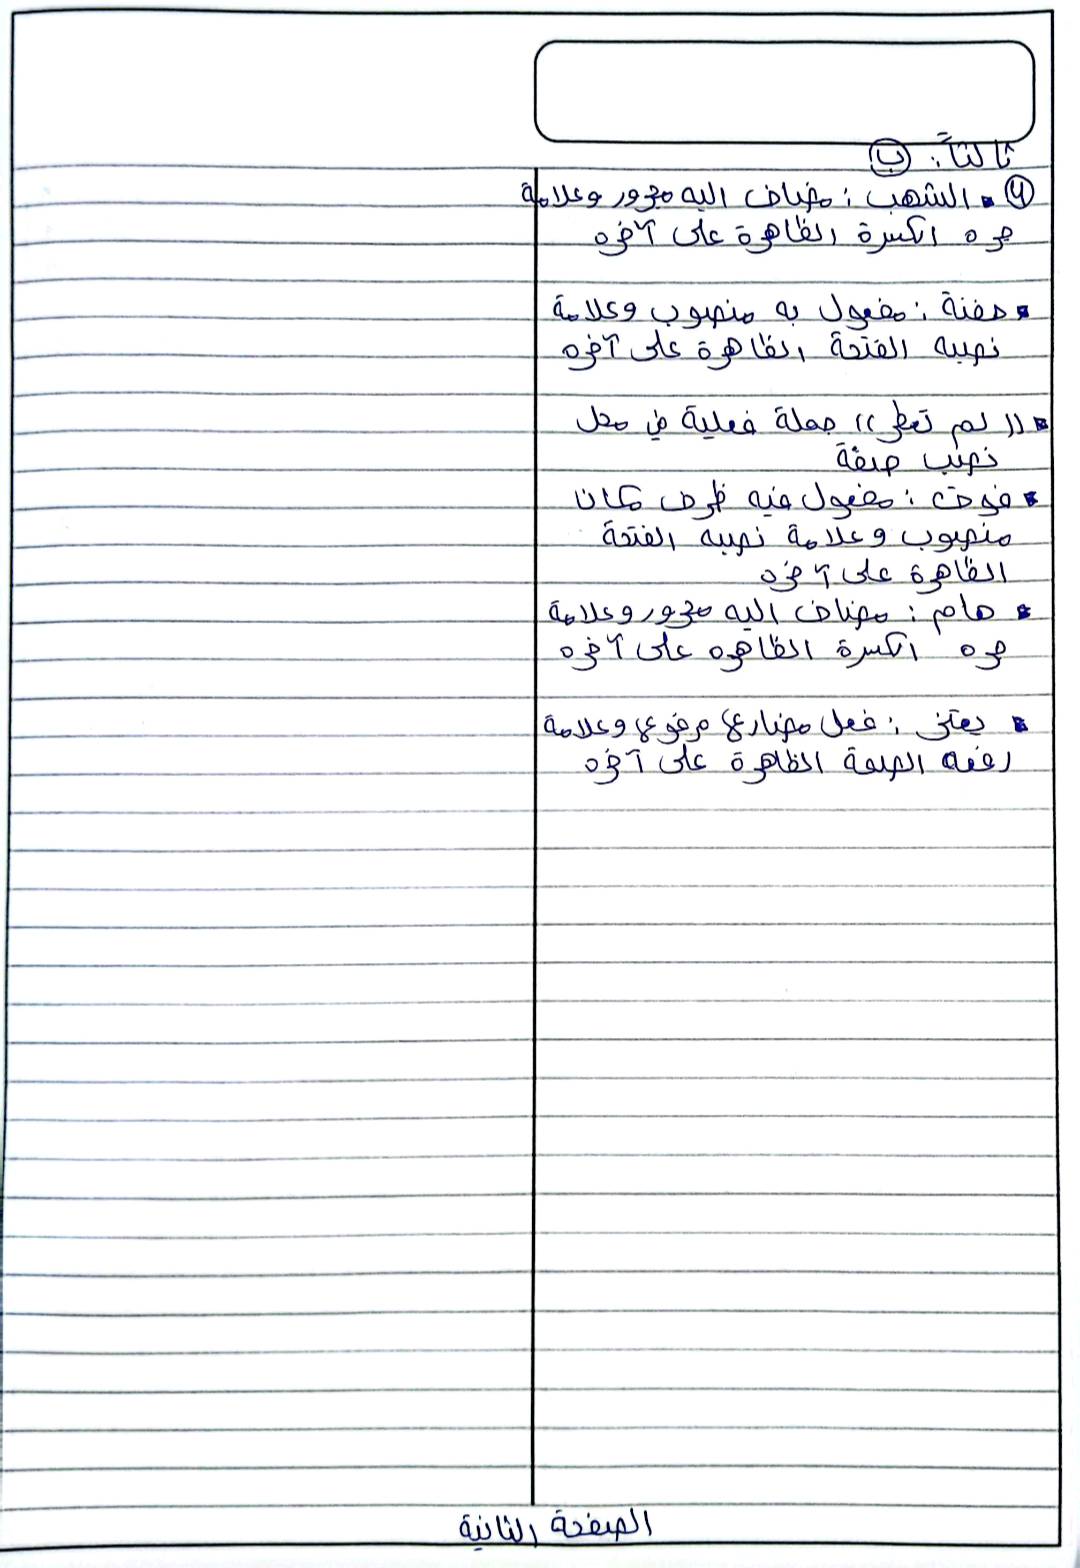 ثالثاً: ب
١ • الشهب : مضاف اليه مجرور وعلامة
جره الكسرة الظاهرة على آخره
• حفنة : مفعول به منصوب وعلامة
نصبه الفتحة الظاهرة على آخره
• (( لم تعط )) جملة فعلية في محل
نصب صفة
• فوق : مفعول فيه ظرف مكان
منصوب وعلامة نصبه الفتحة
الظاهرة على آخره
• هام : مضاف اليه مجرور وعلامة
جره الكسرة الظاهره على آخره
• يعتز : فعل مضارع مرفوع وعلامة
رفعه الضمة الظاهرة على آخره
الصفحة الثانية